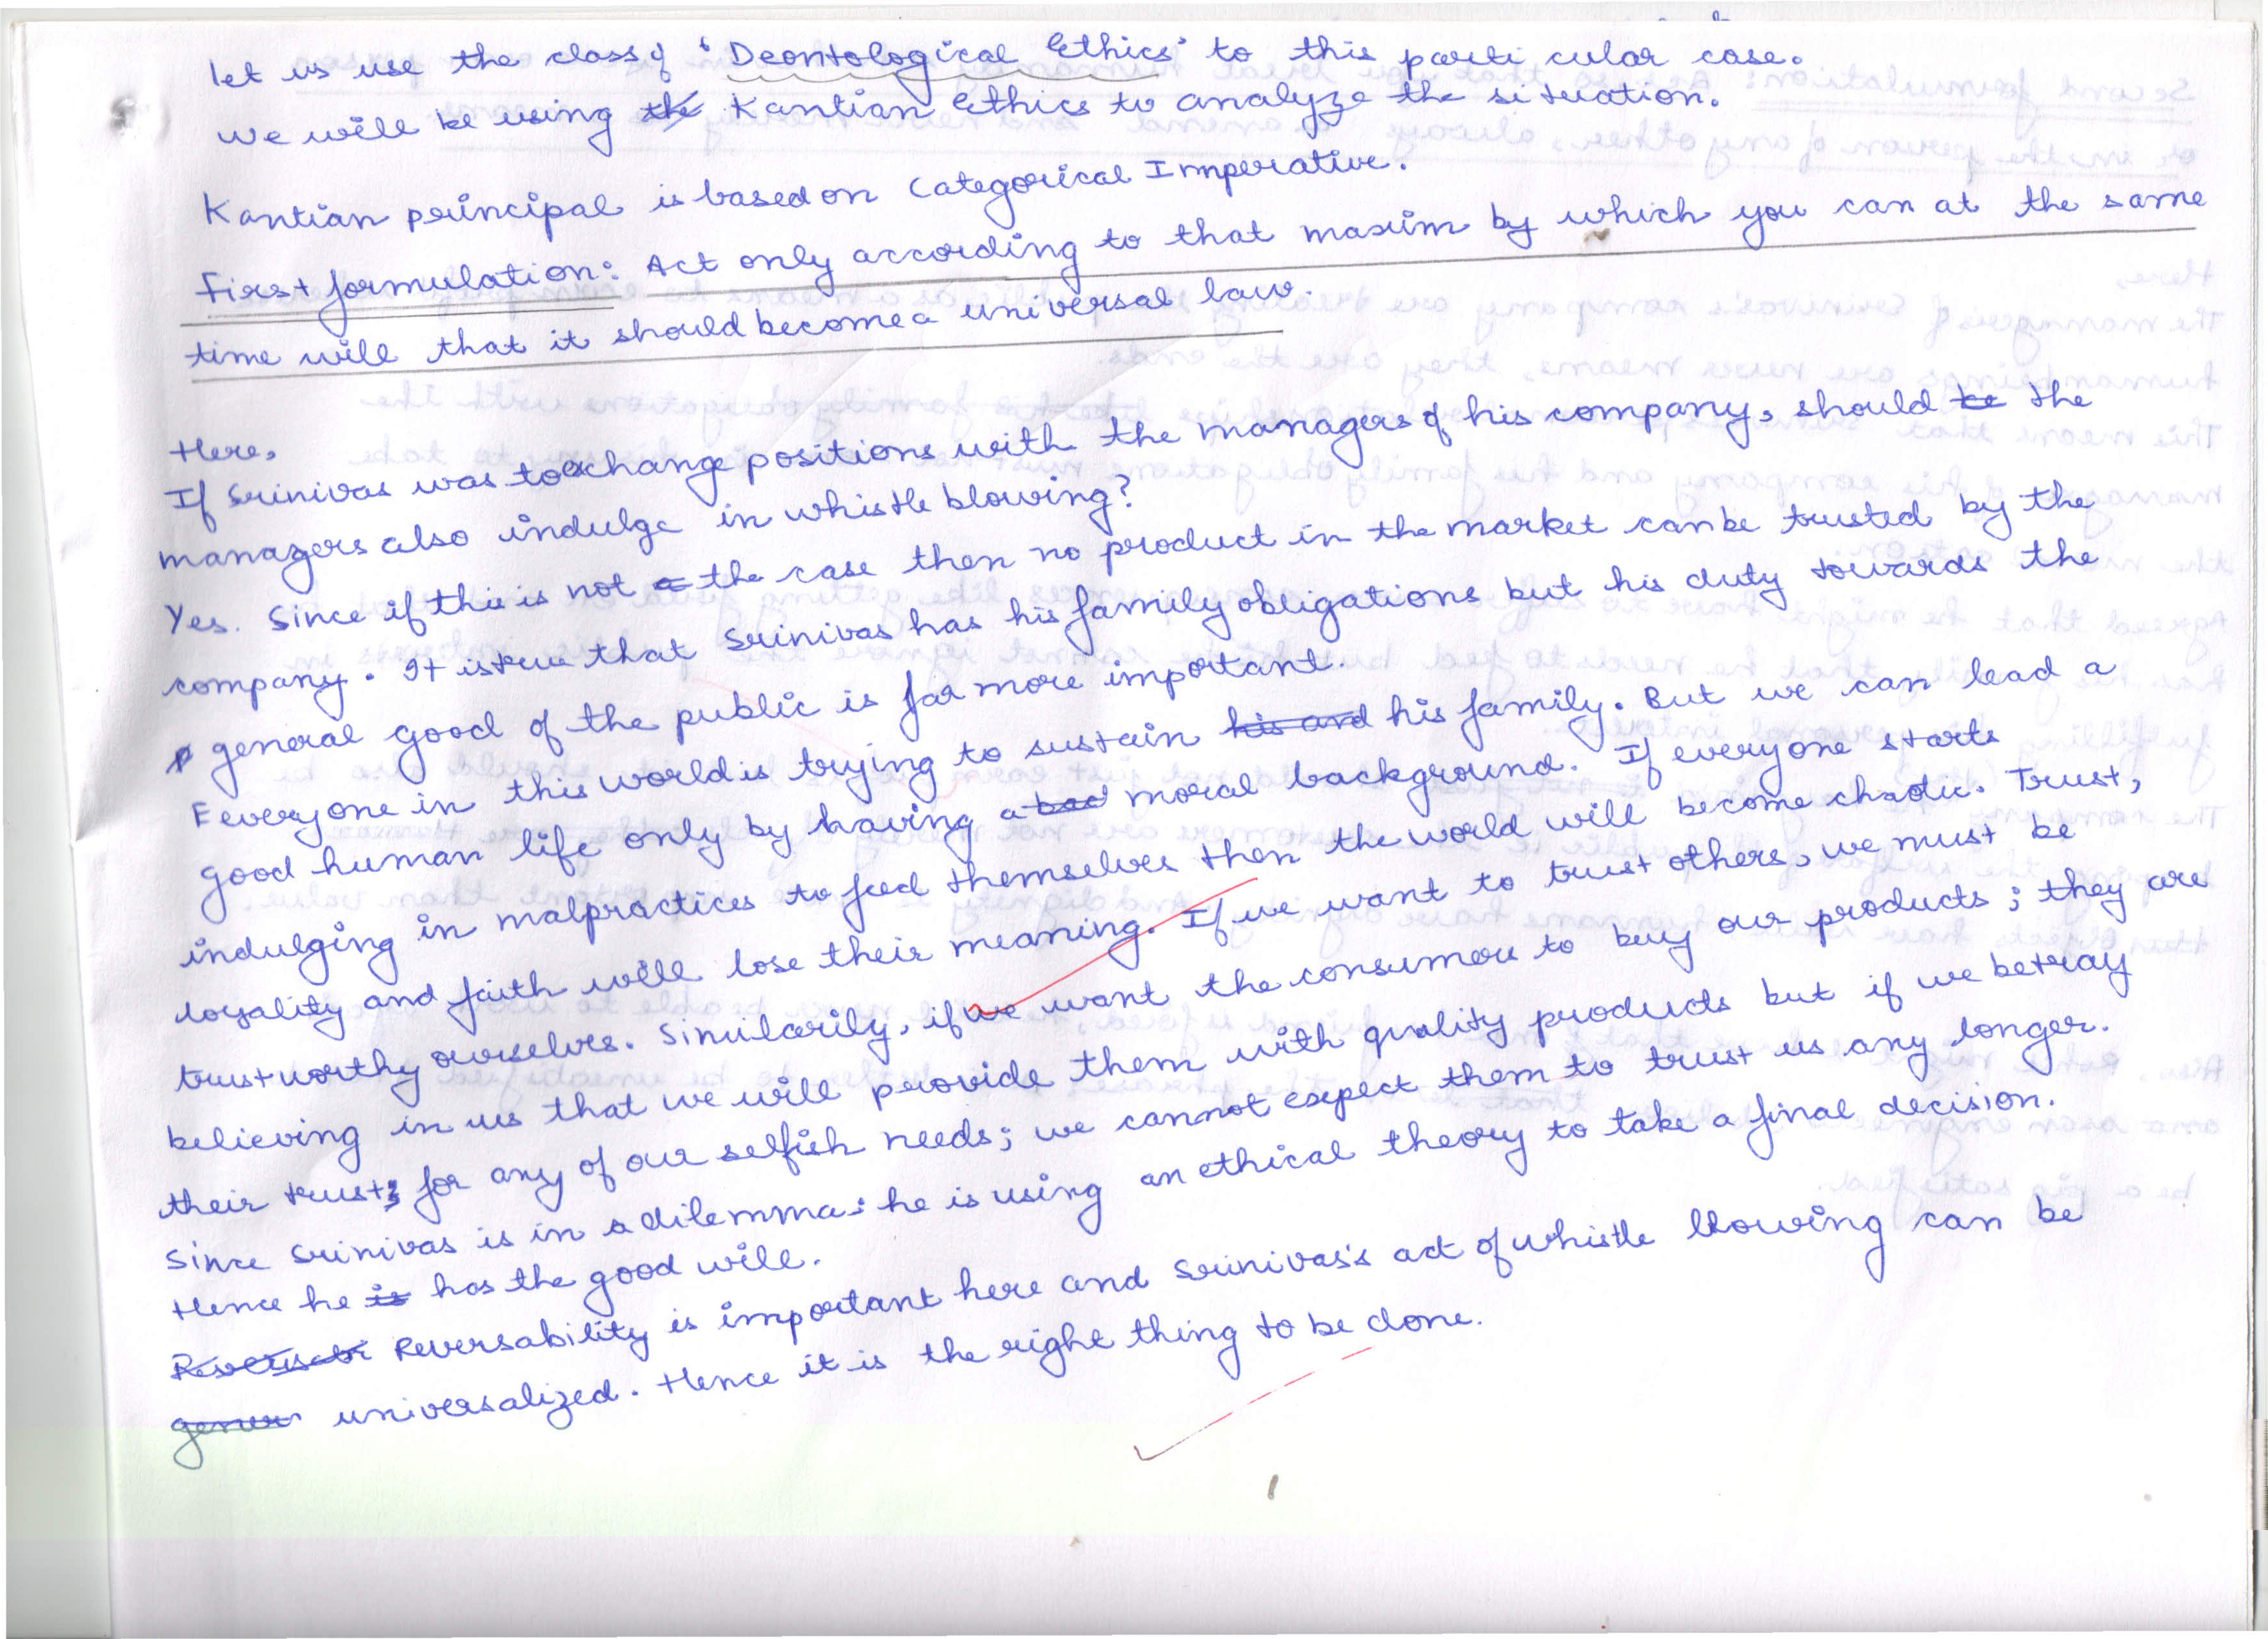 let us use the class of 'Deontological Ethics' to this particular case.
we will be using the Kantian Ethics to analyze the situation.
Kantian principal is based on Categorical Imperative.
First formulation: Act only according to that maxim by which you can at the same
time will that it should become a universal law.
Here,
If Srinivas was to exchange positions with the managers of his company, should be the
managers also indulge in whistle blowing?
Yes. Since if this is not a the case then no product in the market can be trusted by the
company. It is true that Srinivas has his family obligations but his duty towards the
general good of the public is far more important.
Everyone in this world is trying to sustain his and his family. But we can lead a
good human life only by having a bad moral background. If everyone starts
indulging in malpractices to feed themselves then the world will become chaotic. Trust,
loyality and faith will lose their meaning. If we want to trust others, we must be
trustworthy ourselves. Similarily, if we want the consumers to buy our products; they are
believing in us that we will provide them with quality products but if we betray
their trust; for any of our selfish needs; we cannot expect them to trust us any longer.
Since Srinivas is in a dilemma; he is using an ethical theory to take a final decision.
Hence he is has the good will.
Reversabi Reversability is important here and Srinivas's act of whistle blowing can be
gener universalized. Hence it is the right thing to be done.